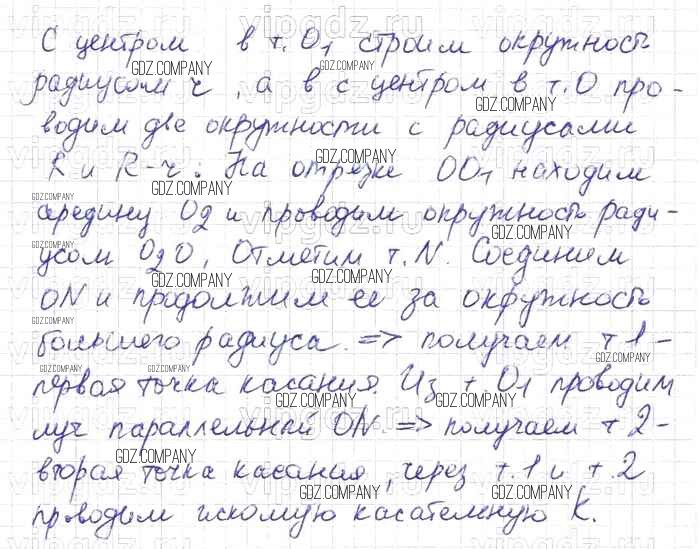 С центром в т. О1 строим окружность
радиусом r, а в с центром в т. О про-
водим две окружности с радиусами
R и R-r. На отрезке ОО1 находим
середину О2 и проводим окружность ради-
усом О2О, Отметим т. N. Соединим
ON и продолжим ее за окружность
большего радиуса. => получаем т 1-
первая точка касания. Из т. О1 проводим
луч параллельный ON. => получаем т 2-
вторая точка касания, через т. 1 и т. 2
проводим искомую касательную К.